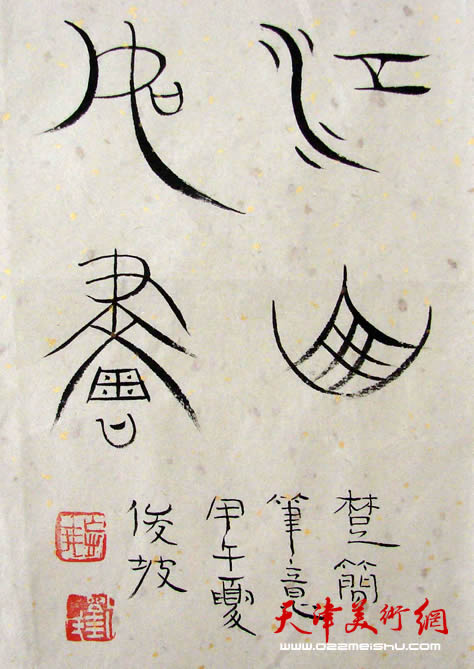 江山
如畫
楚簡
筆意
甲午夏
俊坡
天津美術網
www.022meishu.com